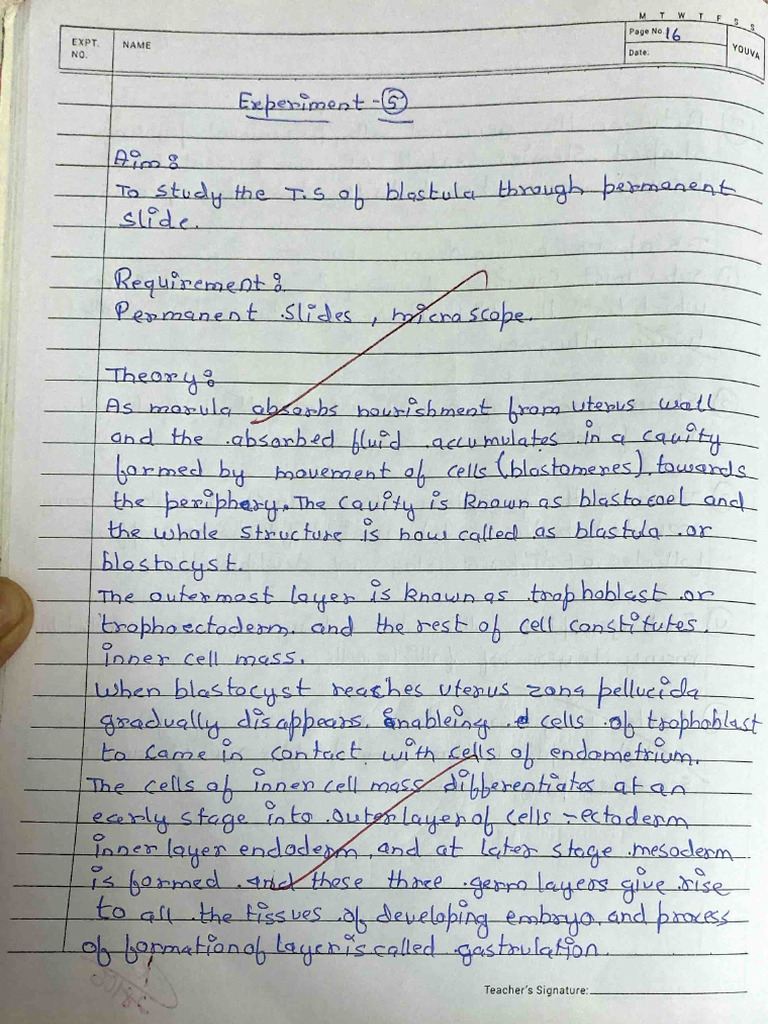 M T W T F S S
EXPT. NO. NAME Page No. 16
Date: YOUVA
Experiment - 5
Aim :
To study the T.S of blastula through permanent
slide.
Requirement :
Permanent slides , microscope.
Theory :
As morula absorbs nourishment from uterus wall
and the absorbed fluid accumulates in a cavity
formed by movement of cells (blastomeres) towards
the periphery. The cavity is known as blastocoel and
the whole structure is now called as blastula or
blastocyst.
The outermost layer is known as trophoblast or
trophoectoderm. and the rest of cell constitutes.
inner cell mass.
When blastocyst reaches uterus zona pellucida
gradually disappears. Enableing cells of trophoblast
to come in contact with cells of endometrium.
The cells of inner cell mass differentiates at an
early stage into outer layer of cells - ectoderm
inner layer endoderm, and at later stage mesoderm
is formed and these three germ layers give rise
to all the tissues of developing embryo. and process
of formation of layer is called gastrulation.
Teacher's Signature: